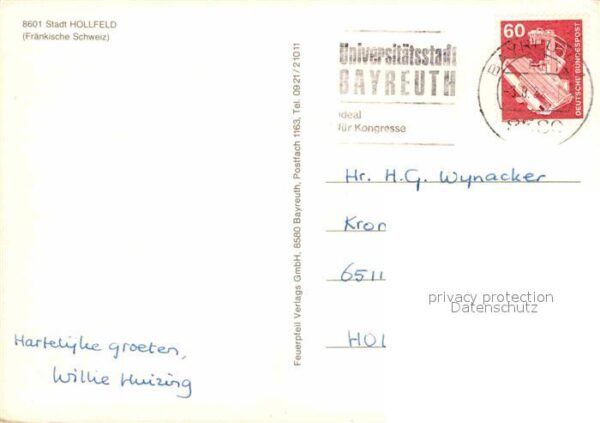 8601 Stadt HOLLFELD
(Fränkische Schweiz)
Universitätsstadt
BAYREUTH
ideal
für Kongresse
60
DEUTSCHE BUNDESPOST
Feuerpfeil Verlags GmbH, 8580 Bayreuth, Postfach 1163, Tel. 0921/21011
Hr. H.G. Wynacker
Kror
6511
HOL
privacy protection
Datenschutz
Hartelijke groeten,
Willie Huizing